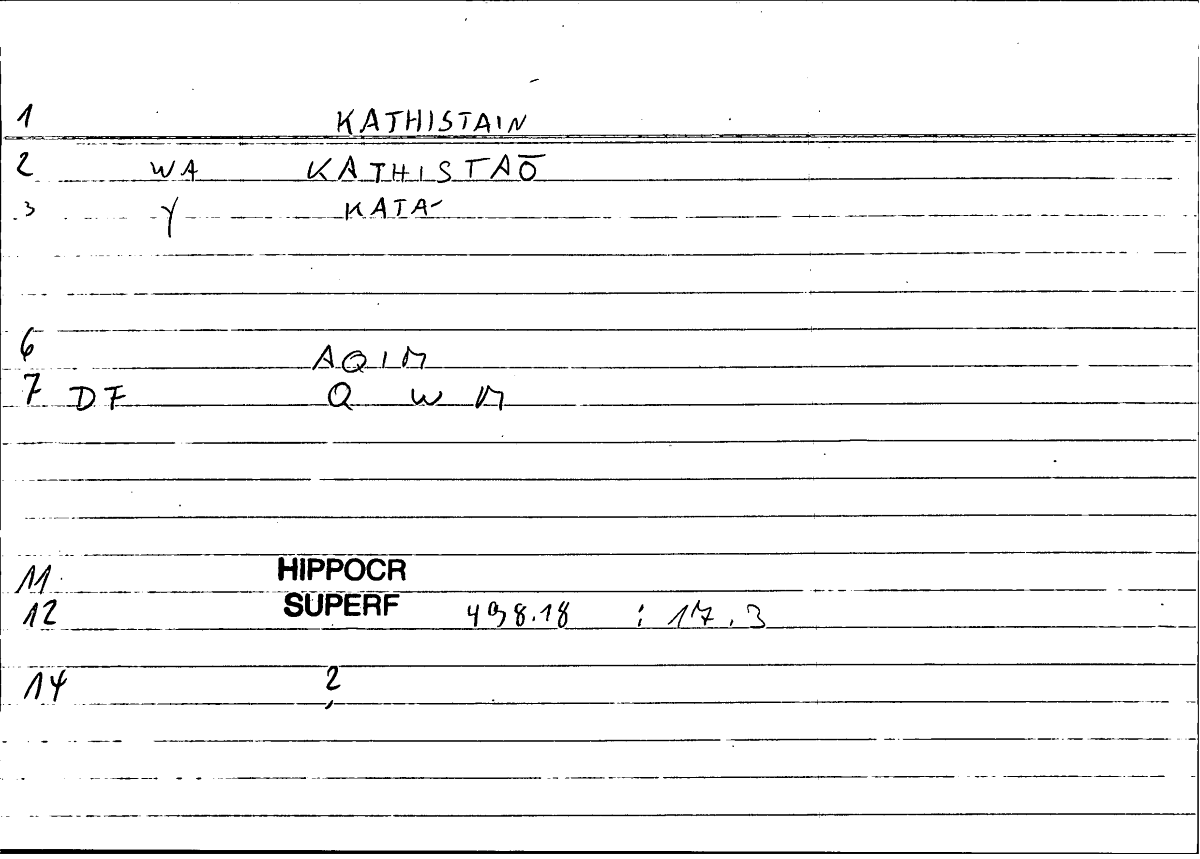 1 KATHISTAIN
2 WA KATHISTAŌ
3 Y KATA-
6 AQIM
7 DF Q W M
11 HIPPOCR
12 SUPERF 498.18 : 17.3
14 2,